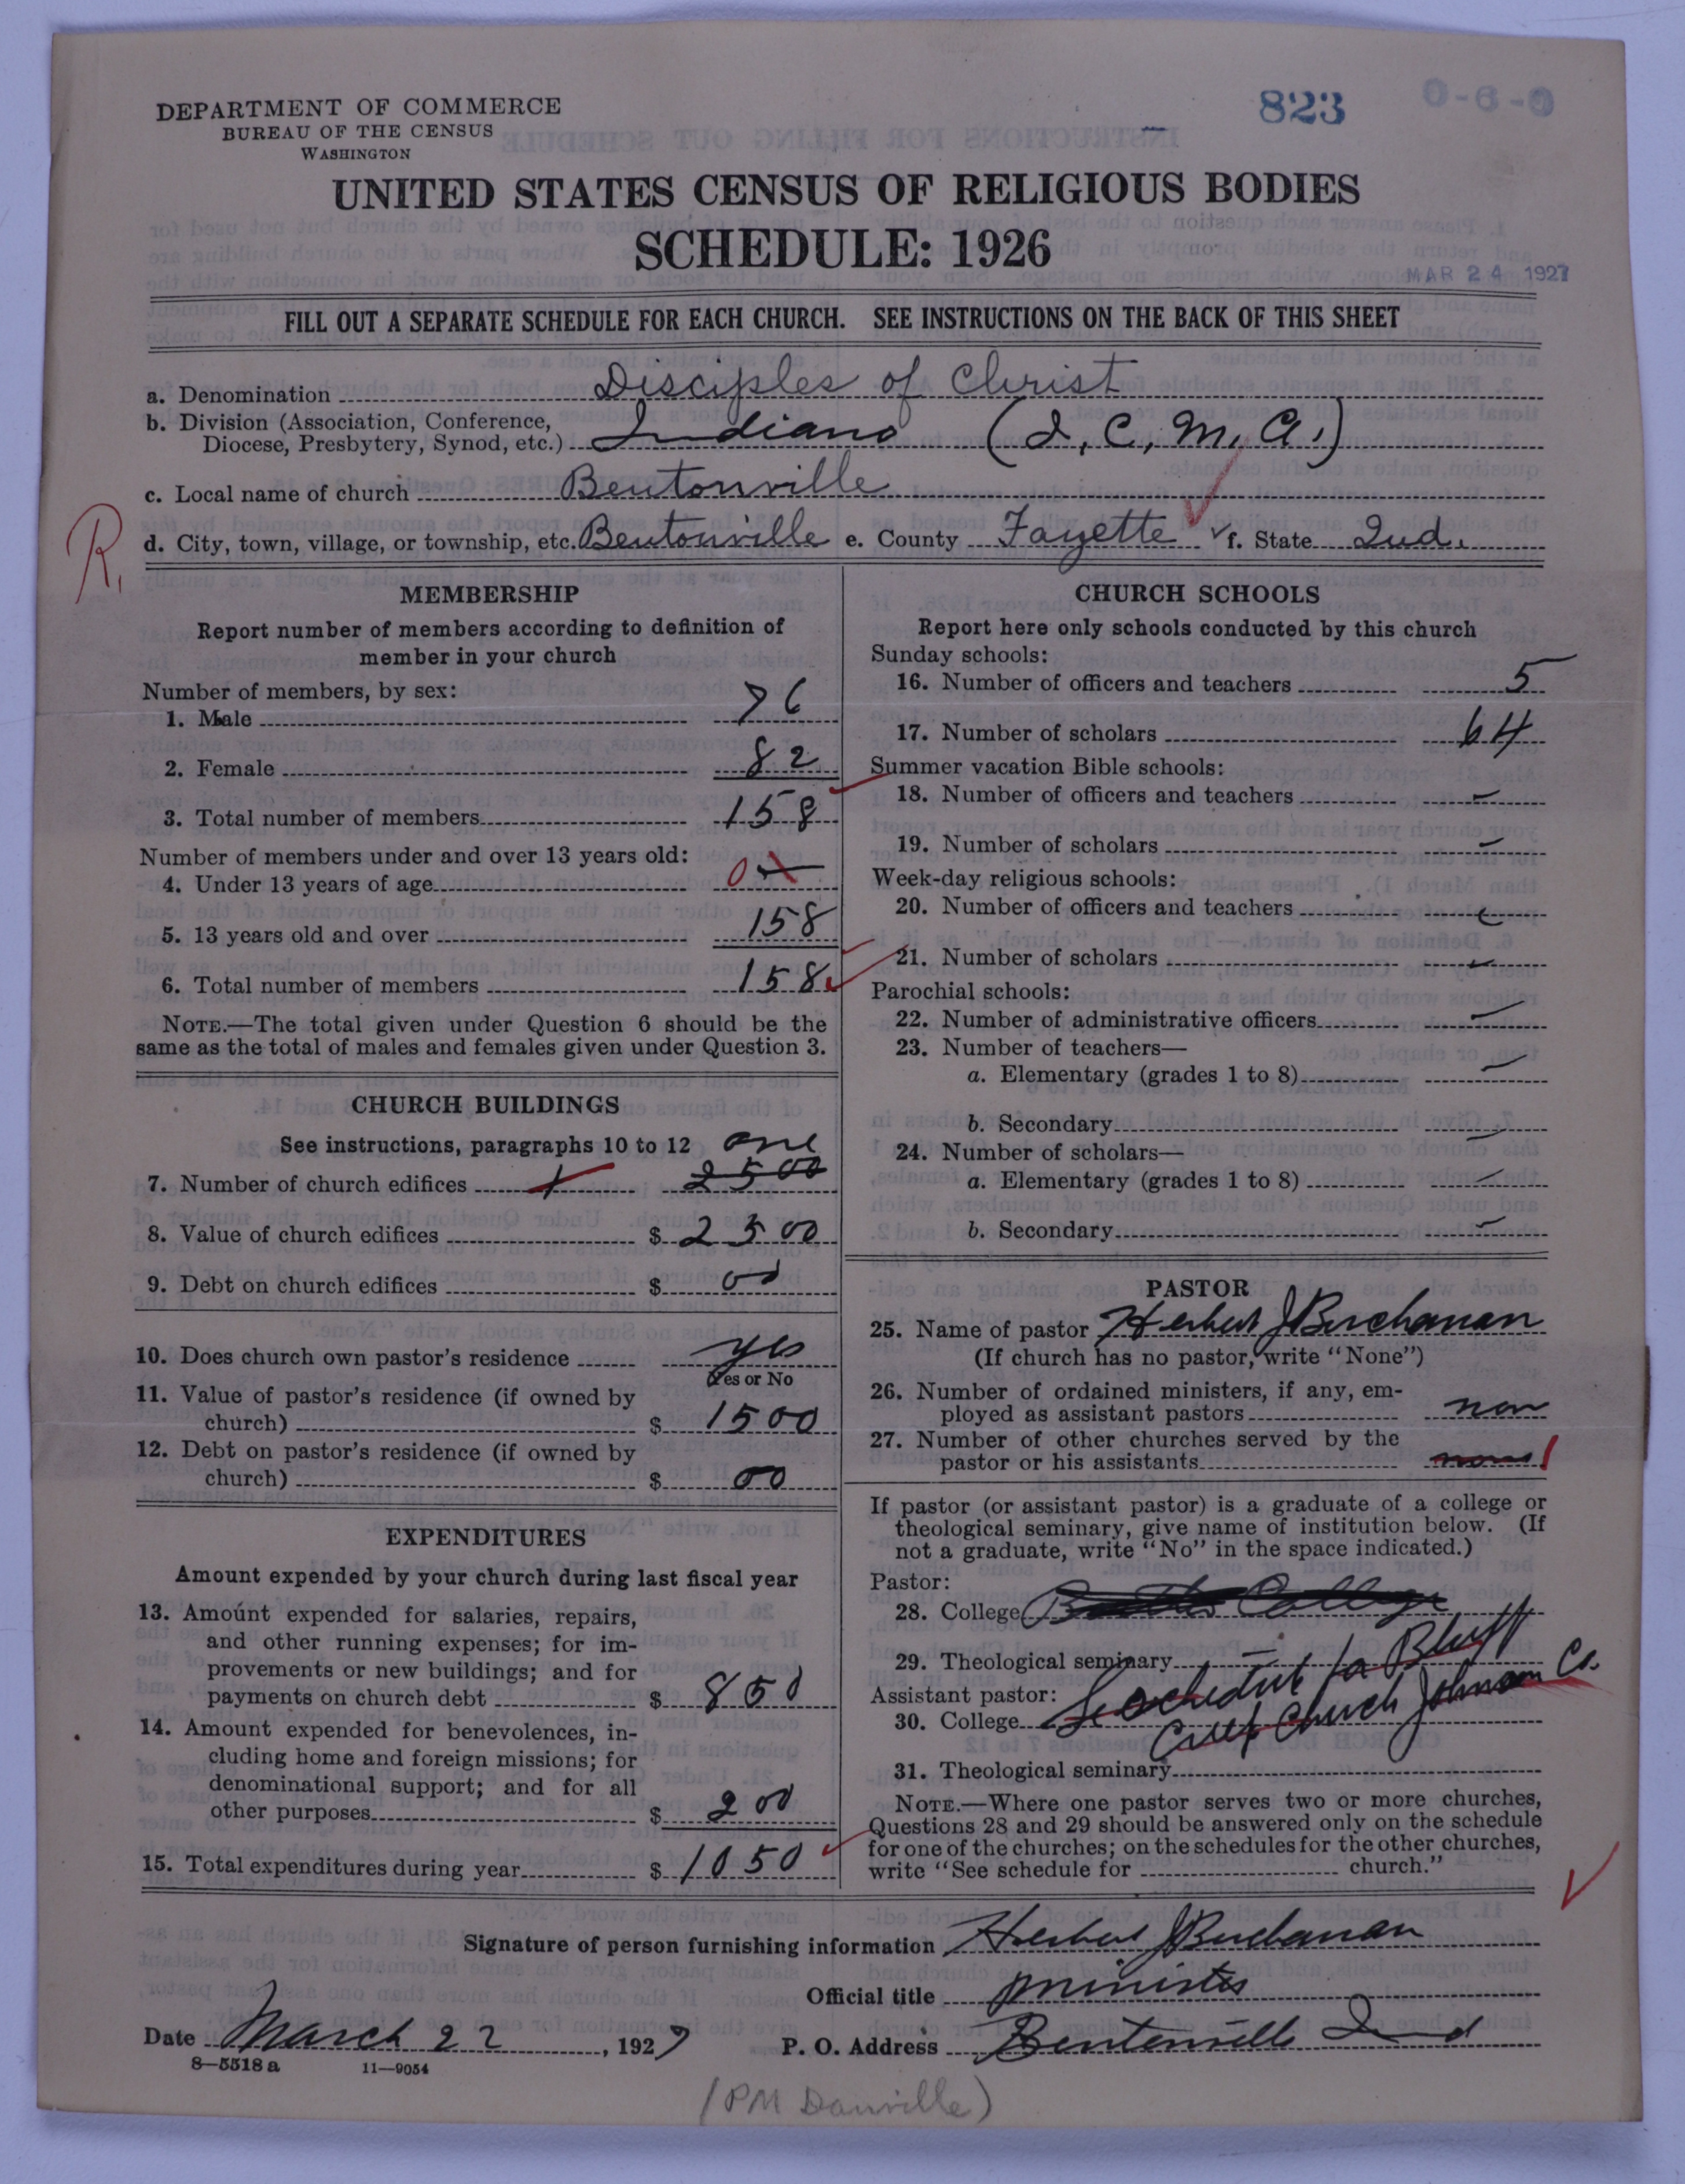 DEPARTMENT OF COMMERCE
BUREAU OF THE CENSUS
WASHINGTON
823
0-6-0
UNITED STATES CENSUS OF RELIGIOUS BODIES
SCHEDULE: 1926
MAR 24 1927
FILL OUT A SEPARATE SCHEDULE FOR EACH CHURCH. SEE INSTRUCTIONS ON THE BACK OF THIS SHEET
a. Denomination Disciples of Christ
b. Division (Association, Conference,
Diocese, Presbytery, Synod, etc.) Indiana (I, C, M, A,)
c. Local name of church Bentonville
R.
d. City, town, village, or township, etc. Bentonville e. County Fayette f. State Ind.
MEMBERSHIP
Report number of members according to definition of
member in your church
Number of members, by sex:
1. Male 76
2. Female 82
3. Total number of members 158
Number of members under and over 13 years old:
4. Under 13 years of age 0
5. 13 years old and over 158
6. Total number of members 158
NOTE.—The total given under Question 6 should be the
same as the total of males and females given under Question 3.
CHURCH BUILDINGS
See instructions, paragraphs 10 to 12 one
7. Number of church edifices 1 2500
8. Value of church edifices $ 2500
9. Debt on church edifices $ 00
10. Does church own pastor's residence yes
Yes or No
11. Value of pastor's residence (if owned by
church) $ 1500
12. Debt on pastor's residence (if owned by
church) $ 00
EXPENDITURES
Amount expended by your church during last fiscal year
13. Amount expended for salaries, repairs,
and other running expenses; for im-
provements or new buildings; and for
payments on church debt $ 850
14. Amount expended for benevolences, in-
cluding home and foreign missions; for
denominational support; and for all
other purposes $ 200
15. Total expenditures during year $ 1050
CHURCH SCHOOLS
Report here only schools conducted by this church
Sunday schools:
16. Number of officers and teachers 5
17. Number of scholars 64
Summer vacation Bible schools:
18. Number of officers and teachers -
19. Number of scholars -
Week-day religious schools:
20. Number of officers and teachers -
21. Number of scholars -
Parochial schools:
22. Number of administrative officers -
23. Number of teachers—
a. Elementary (grades 1 to 8) -
b. Secondary -
24. Number of scholars—
a. Elementary (grades 1 to 8) -
b. Secondary -
PASTOR
25. Name of pastor Herbert J Buchanan
(If church has no pastor, write "None")
26. Number of ordained ministers, if any, em-
ployed as assistant pastors non
27. Number of other churches served by the
pastor or his assistants none 1
If pastor (or assistant pastor) is a graduate of a college or
theological seminary, give name of institution below. (If
not a graduate, write "No" in the space indicated.)
Pastor:
28. College Butler College
29. Theological seminary -
Assistant pastor: See schedule for Bluff
30. College Church Johnson Co.
31. Theological seminary
NOTE.—Where one pastor serves two or more churches,
Questions 28 and 29 should be answered only on the schedule
for one of the churches; on the schedules for the other churches,
write "See schedule for church."
Signature of person furnishing information Herbert J Buchanan
Official title minister
Date March 22, 1927 P. O. Address Bentonville Ind
8—5518 a 11—9054
(PM Danville)